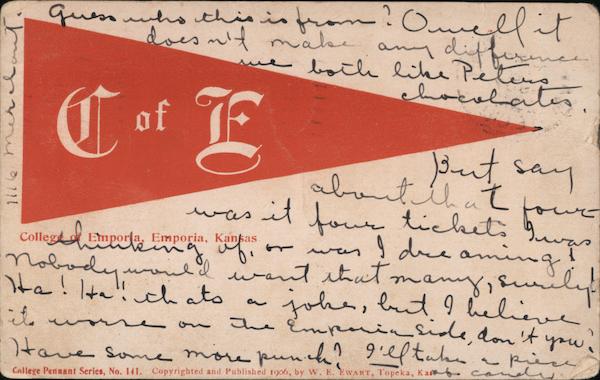 Guess who this is from? O well it
doesn't make any difference
we both like Peters
chocolates.
1116 Merchant.
C of E
But say
about that four
was it four tickets I was
College of Emporia, Emporia, Kansas
thinking of, or was I dreaming?
Nobody would want that many, surely!
Ha! Ha! thats a joke, but I believe
its worse on the Emporia side, don't you?
Have some more punch? I'll take a piece
College Pennant Series, No. 141. Copyrighted and Published 1906, by W. E. EWART, Topeka, Kas.
candy.